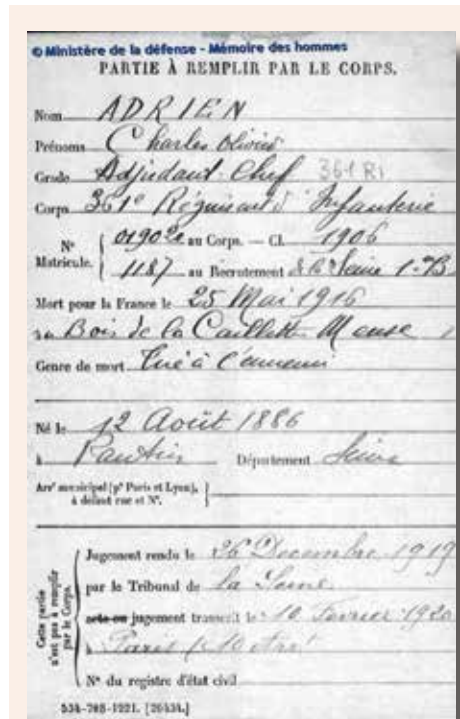 © Ministère de la défense - Mémoire des hommes
PARTIE À REMPLIR PAR LE CORPS.
Nom ADRIEN
Prénoms Charles Olivier
Grade Adjudant-Chef 361 RI
Corps 361e Régiment d'Infanterie
N° Matricule. { au Corps. — Cl. 1906
1187 au Recrutement Seine 1er B
Mort pour la France le 25 Mai 1916
au Bois de la Caillette Meuse
Genre de mort Tué à l'ennemi
Né le 12 Août 1886
à Pantin Département Seine
Arrt municipal (pr Paris et Lyon), à défaut rue et N°. }
Cette partie n'est pas à remplir par le Corps.
Jugement rendu le 26 Decembre 1919
par le Tribunal de la Seine
acte ou jugement transcrit le 10 Fevrier 1920
à Paris (10 Arrt
N° du registre d'état civil
534-708-1921. [26434.]